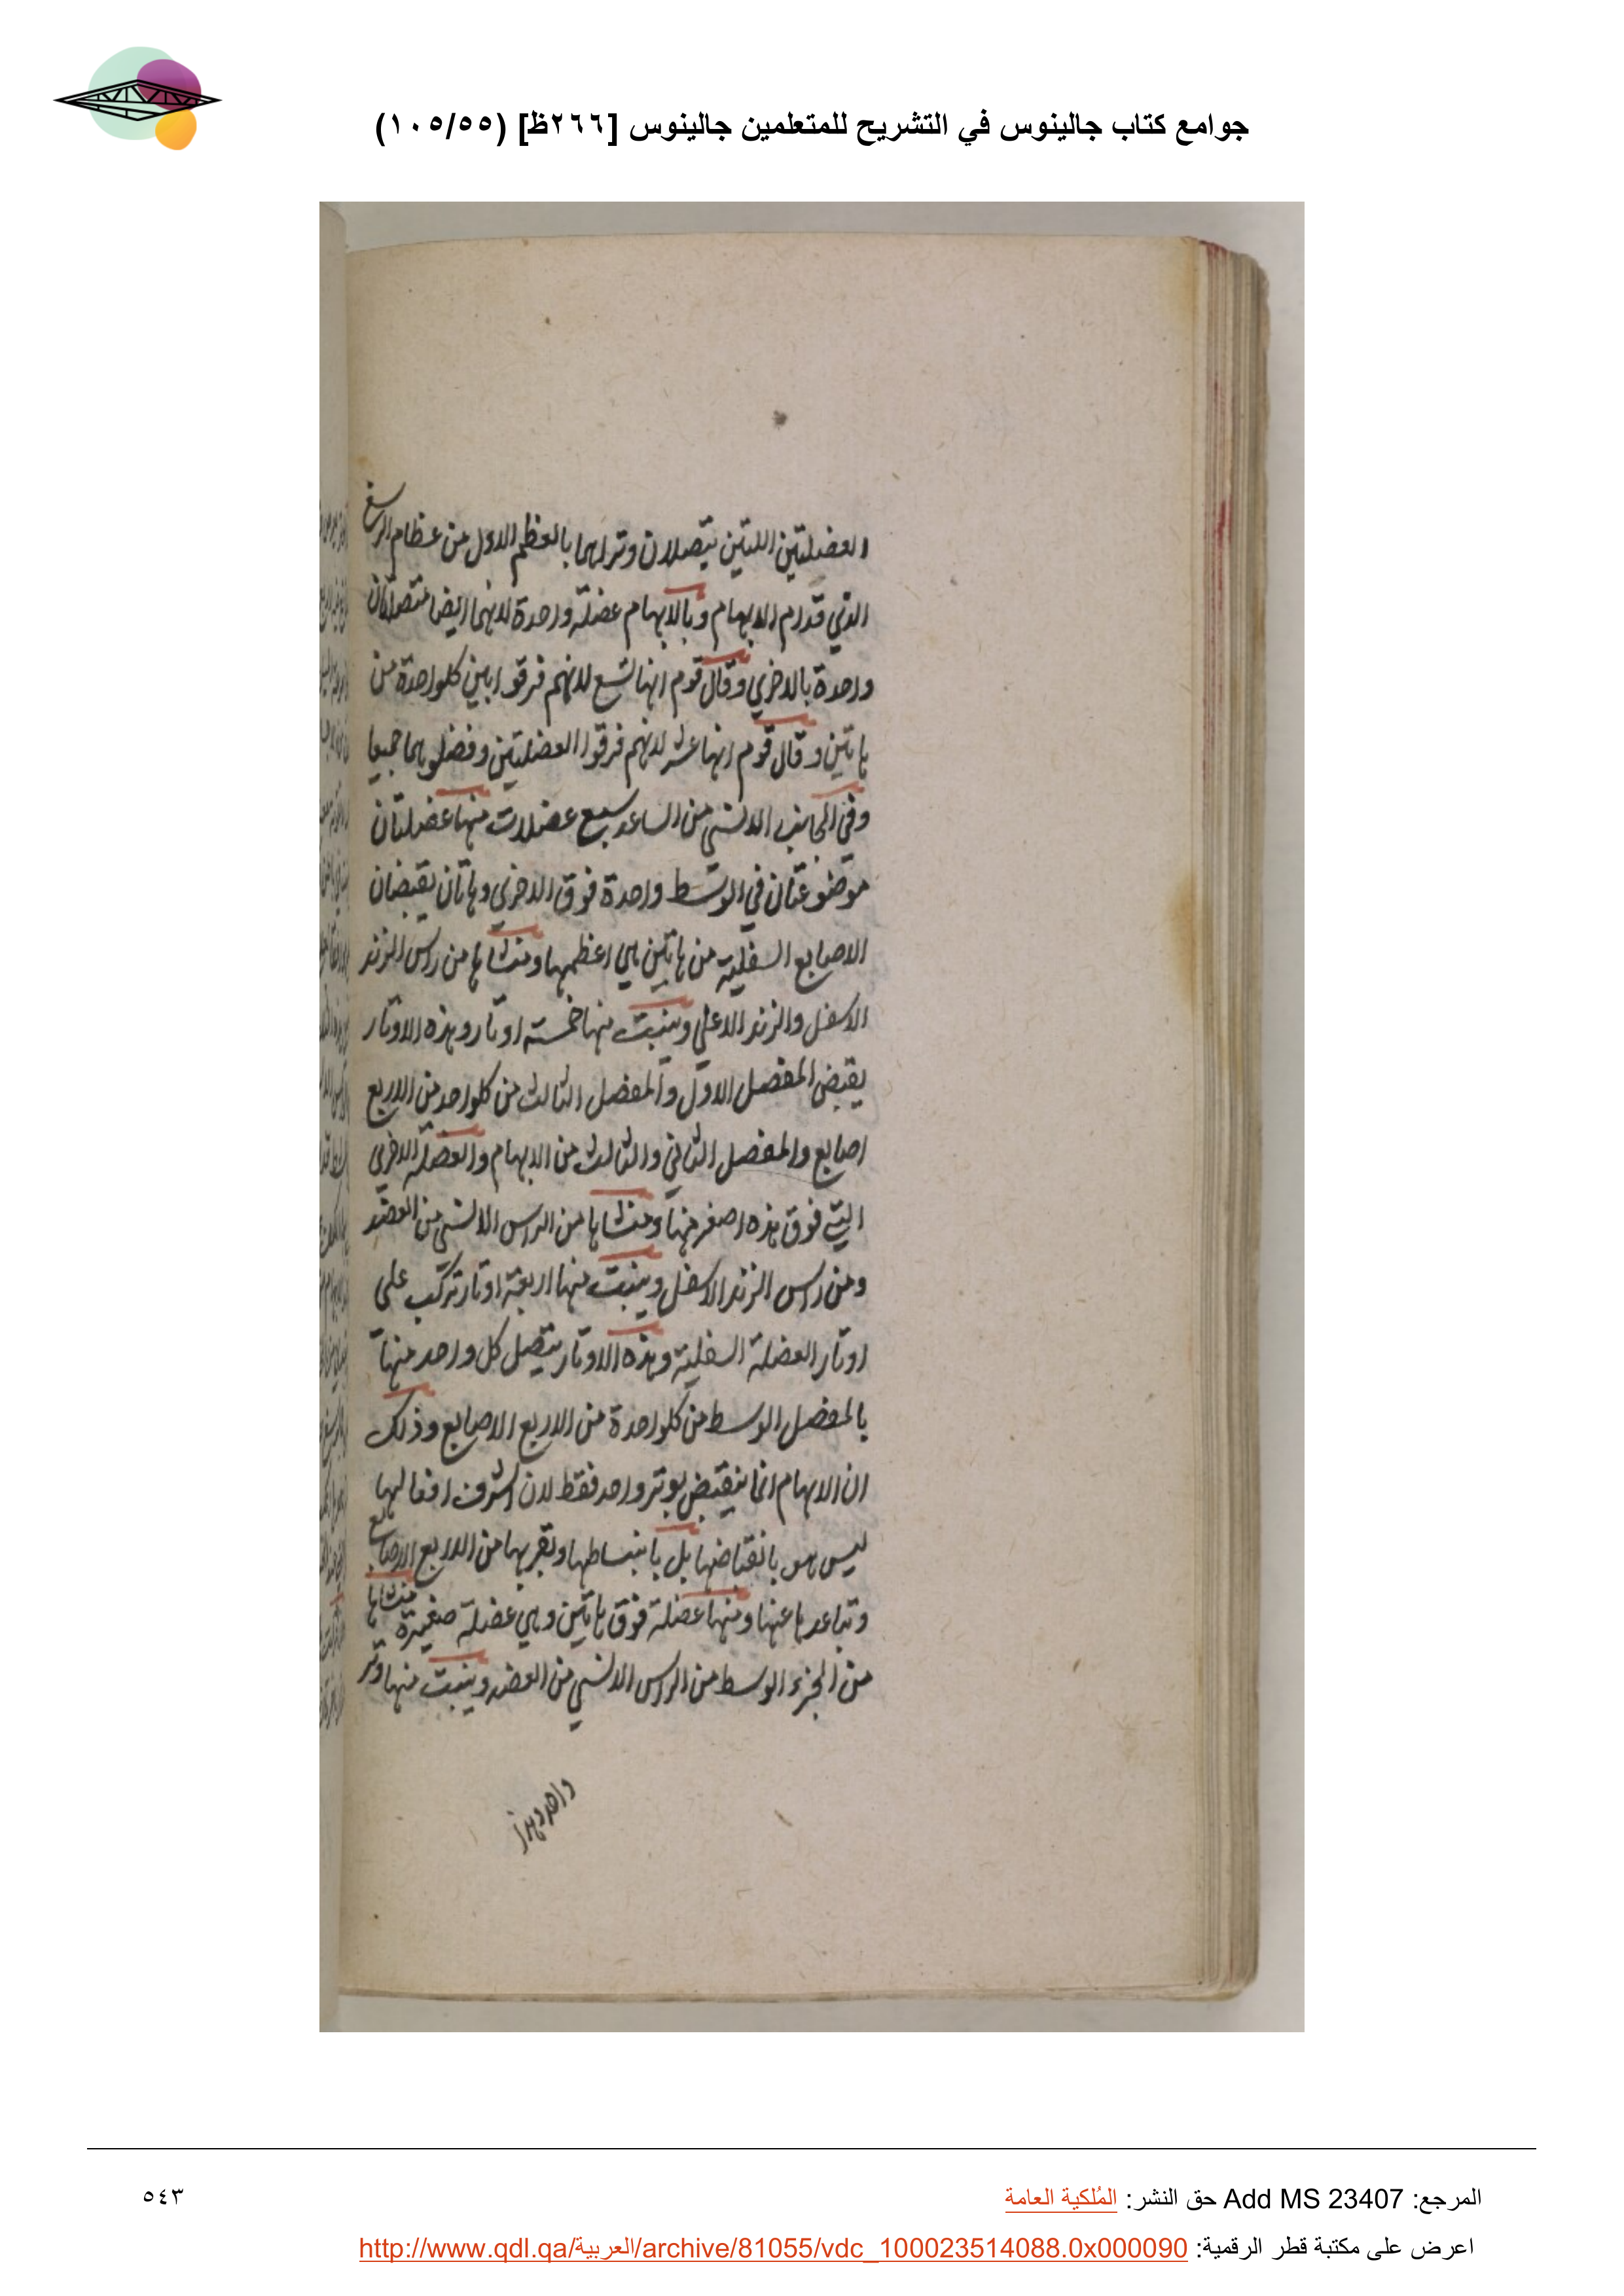 جوامع كتاب جالينوس في التشريح للمتعلمين جالينوس [٢٦٦ظ] (١٠٥/٥٥)
العضلتين اللتين يتصلان وتراهما بالعظم الاول من عظام الرسغ
الذي قدام الابهام وبالابهام عضلة واحدة لانهما ايضا متصلتان
واحدة بالاخري وقال قوم انها تسع لانهم فرقوا بين كلواحدة من
هاتين وقال قوم انها عشر لانهم فرقوا العضلتين وفضلوهما جميعا
وفي الجانب الانسي من الساعد سبع عضلات منها عضلتان
موضوعتان في الوسط واحدة فوق الاخري وهاتان يقبضان
الاصابع السفلية من هاتين هي اعظمها ومنشاها من راس الزند
الاسفل والزند الاعلي وينبت منها خمسة اوتار وهذه الاوتار
يقبض المفصل الاول والمفصل الثالث من كلواحد من الاربع
اصابع والمفصل الثاني والثالث من الابهام والعضلة الاخري
التي فوق هذه اصغر منها ومنشاها من الراس الانسي من العضد
ومن راس الزند الاسفل وينبت منها اربعة اوتار تركب على
اوتار العضلة السفلية وهذه الاوتار يتصل كل واحد منها
بالمفصل الوسط من كلواحدة من الاربع الاصابع وذلك
ان الابهام انما ينقبض بوتر واحد فقط لان اشرف افعالها
ليس هو بانقباضها بل بانبساطها وتقربها من الاربع الاصابع
وتباعدها عنها ومنها عضلة فوق هاتين وهي عضلة صغيرة منشاها
من الجزء الوسط من الراس الانسي من العضد وينبت منها وتر
واحد وهذا
المرجع: Add MS 23407 حق النشر: المُلكية العامة
٥٤٣
اعرض على مكتبة قطر الرقمية: http://www.qdl.qa/العربية/archive/81055/vdc_100023514088.0x000090